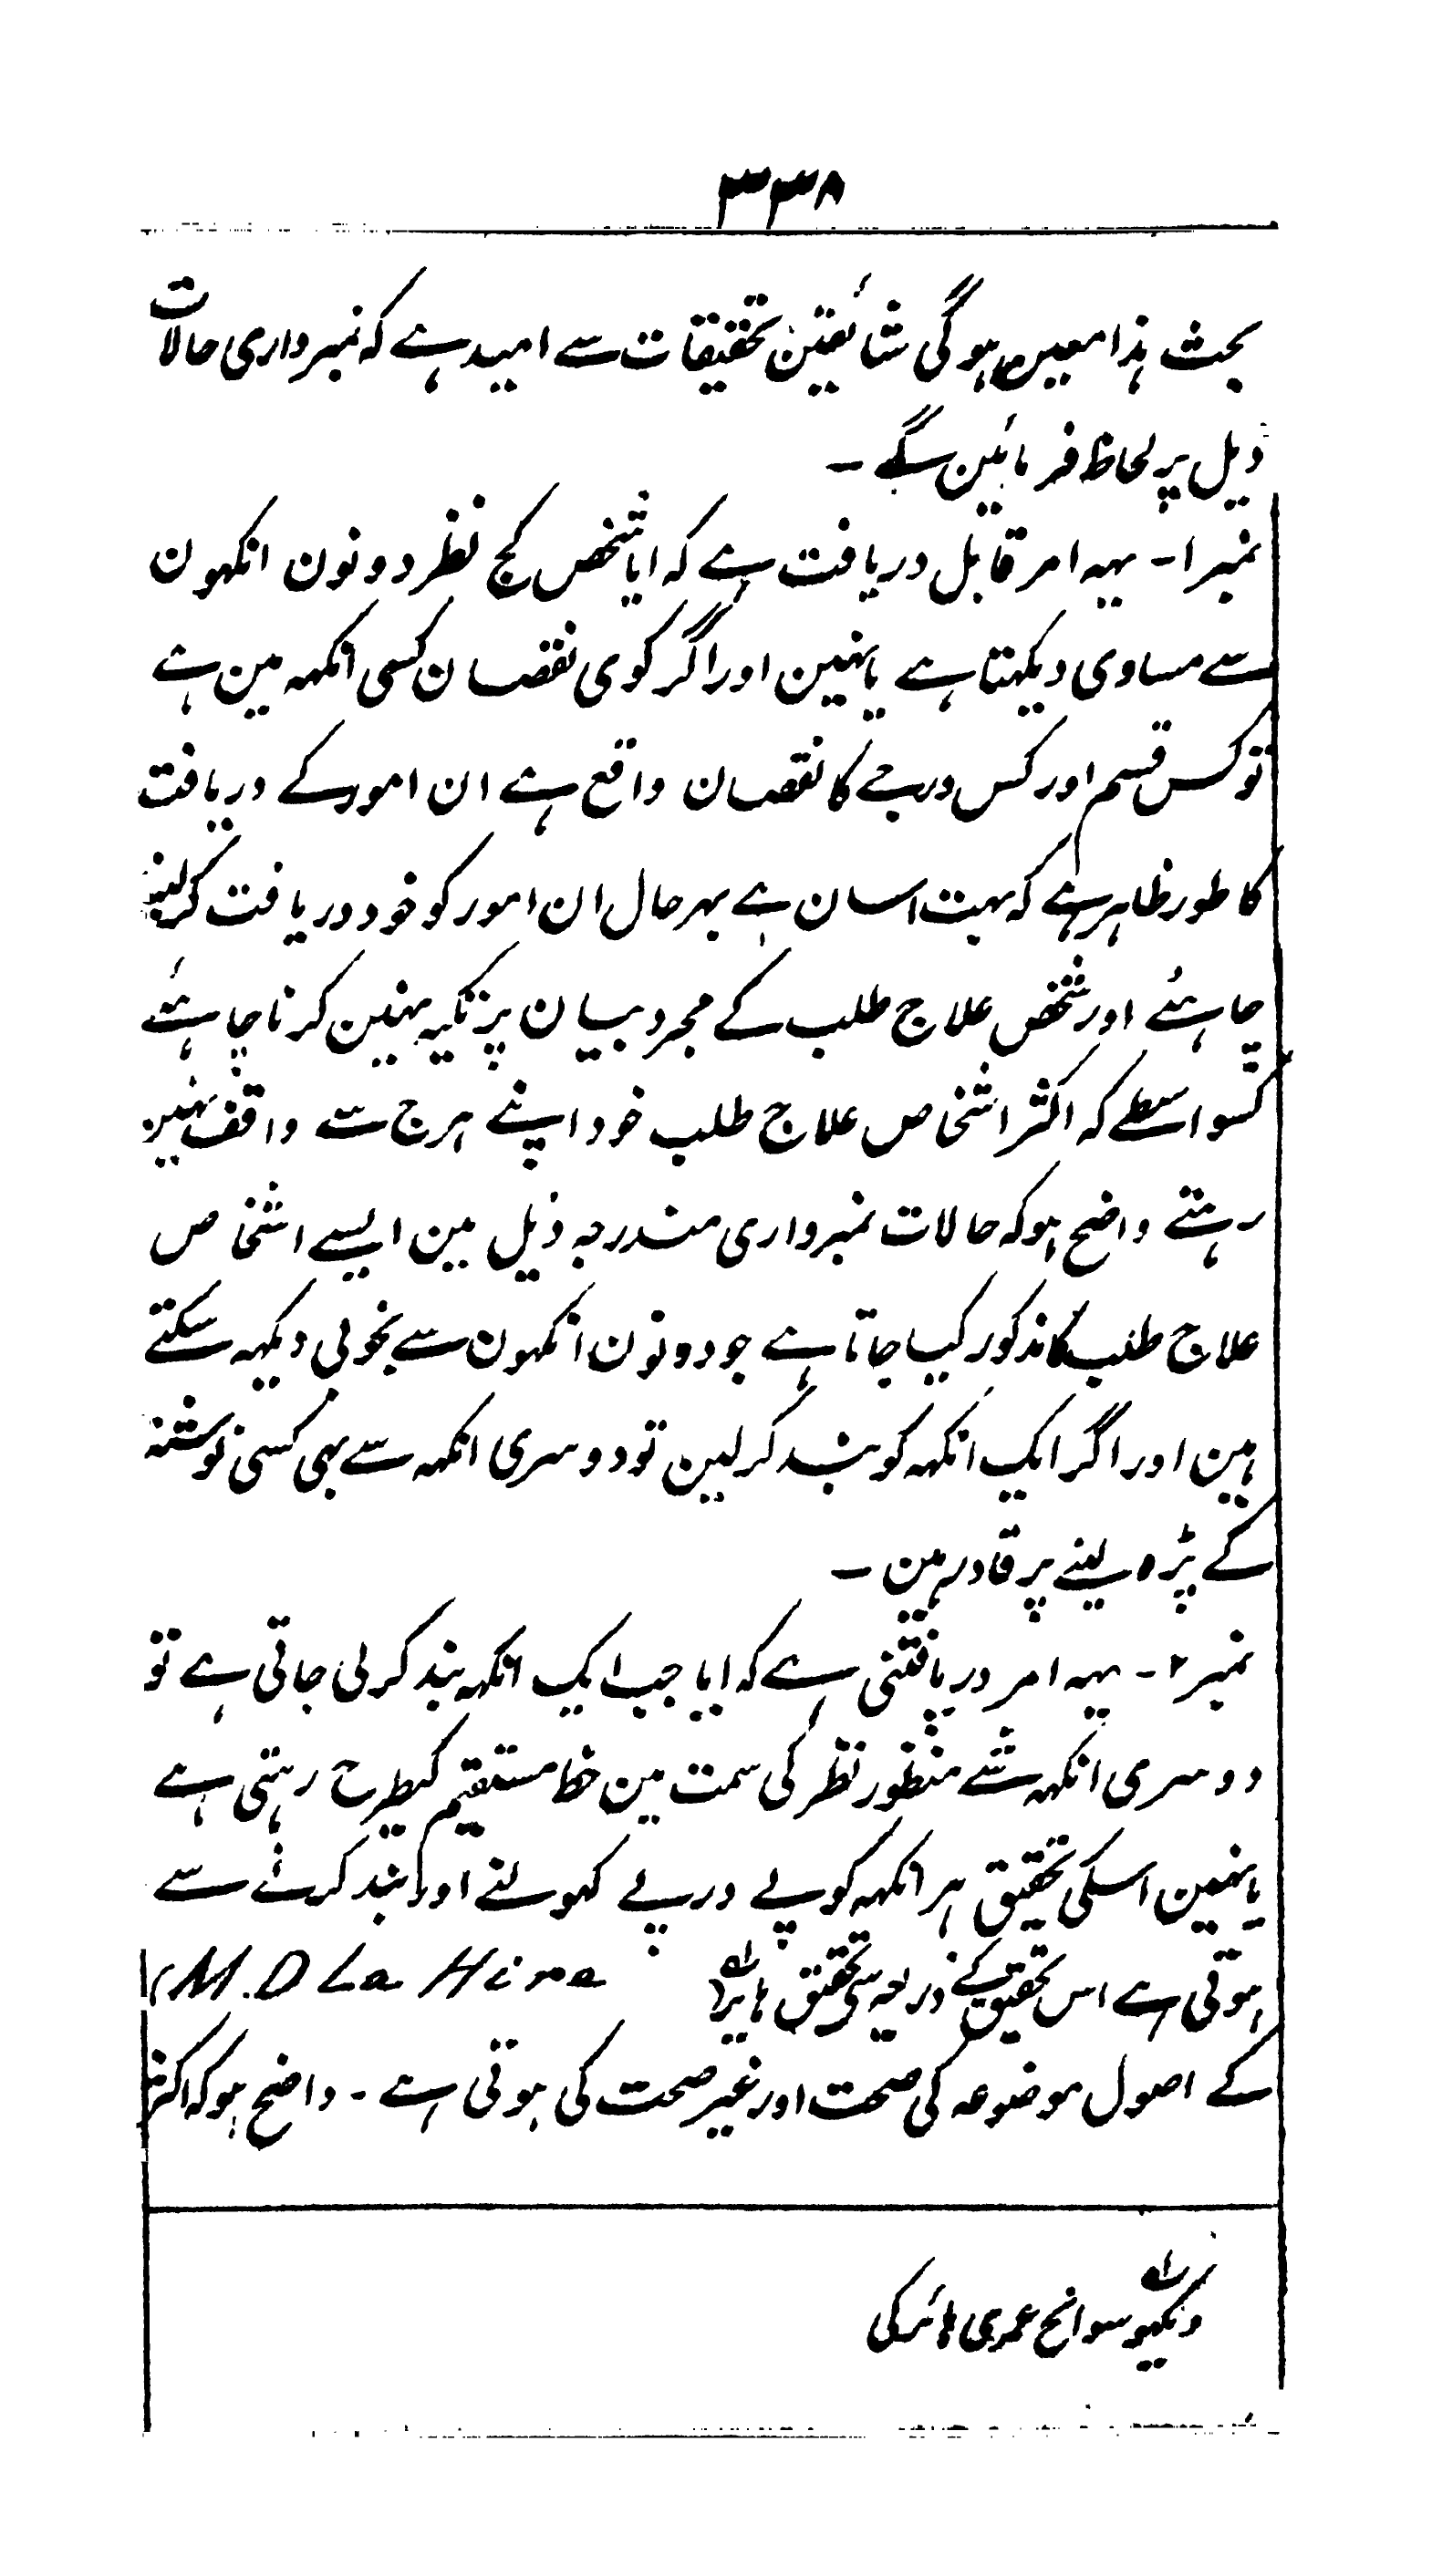 ۳۳۸
بحث ہذا معین ہوگی شائقین تحقیقات سے امید ہے کہ نمبرداری حالات
ذیل پر لحاظ فرمائین گے ۔
نمبر ۱ ۔ یہہ امر قابل دریافت ہے کہ ایا شخص کج نظر دونون انکہون
سے مساوی دیکہتا ہے یا نہین اور اگر کوی نقصان کسی انکہہ مین ہے
تو کس قسم اور کس درجے کا نقصان واقع ہے ان امور کے دریافت
کا طور ظاہر ہے کہ بہت اسان ہے بہر حال ان امور کو خود دریافت کر لینا
چاہئے اور شخص علاج طلب کے مجرد بیان پر تکیہ نہین کرنا چاہئے
کسواسطے کہ اکثر اشخاص علاج طلب خود اپنے ہرج سے واقف نہین
رہتے واضح ہو کہ حالات نمبرواری مندرجہ ذیل مین ایسے اشخاص
علاج طلب کا مذکور کیا جاتا ہے جو دونون انکہون سے بخوبی دیکہہ سکتے
ہین اور اگر ایک انکہہ کو بند کر لین تو دوسری انکہہ سے بہی کسی نوشتہ
کے پڑہ لینے پر قادر ہین ۔
نمبر ۲ ۔ یہہ امر دریافتنی ہے کہ ایا جب ایک انکہہ بند کر لی جاتی ہے تو
دوسری انکہہ شے منظور نظر کی سمت مین خط مستقیم کیطرح رہتی ہے
یا نہین اسکی تحقیق ہر انکہہ کو پے در پے کہولنے اور بند کرنے سے
ہوتی ہے اس تحقیق کے ذریعہ سے تحقیق ہایر M. D La Hire
کے اصول موضوعہ کی صحت اور غیر صحت کی ہوتی ہے ۔ واضح ہو کہ اکثر
دیکہیو سوانح عمری ہائر کی